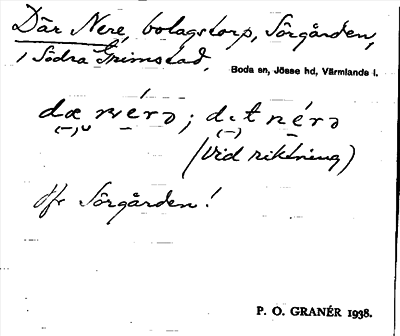 Där Nere, bolagstorp, Sörgården,
i Södra Grimstad,
Boda sn, Jösse hd, Värmlands l.
dæ nérə; dit nérə
(vid riktning)
jfr Sörgården!
P. O. GRANÉR 1938.